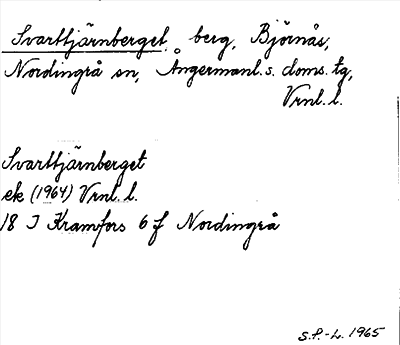 Svarttjärnberget, berg, Björnås,
Nordingrå sn, Ångermanl. s. doms. tg,
Vrnl. l.
Svarttjärnberget
ek (1964) Vrnl. l.
18 I Kramfors 6 f Nordingrå
S.P.-L. 1965